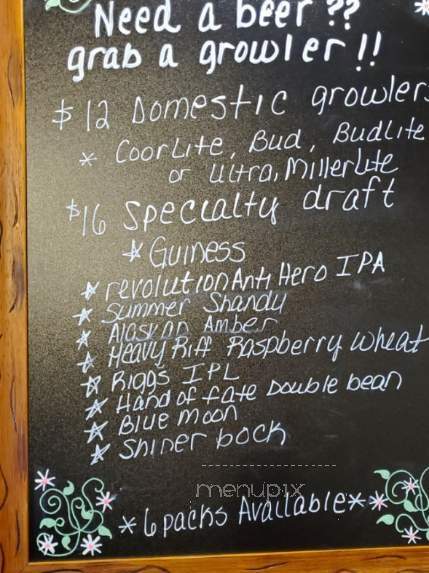 Need a beer??
grab a growler!!
$12 Domestic growlers
* CoorLite, Bud, BudLite
or Ultra, MillerLite
$16 Specialty draft
* Guiness
* revolution Anti Hero IPA
* Summer Shandy
* Alaskan Amber
* Heavy Riff Raspberry Wheat
* Riggs IPL
* Hand of fate Double bean
* Blue moon
* Shiner bock
menupix
* 6 packs Available *